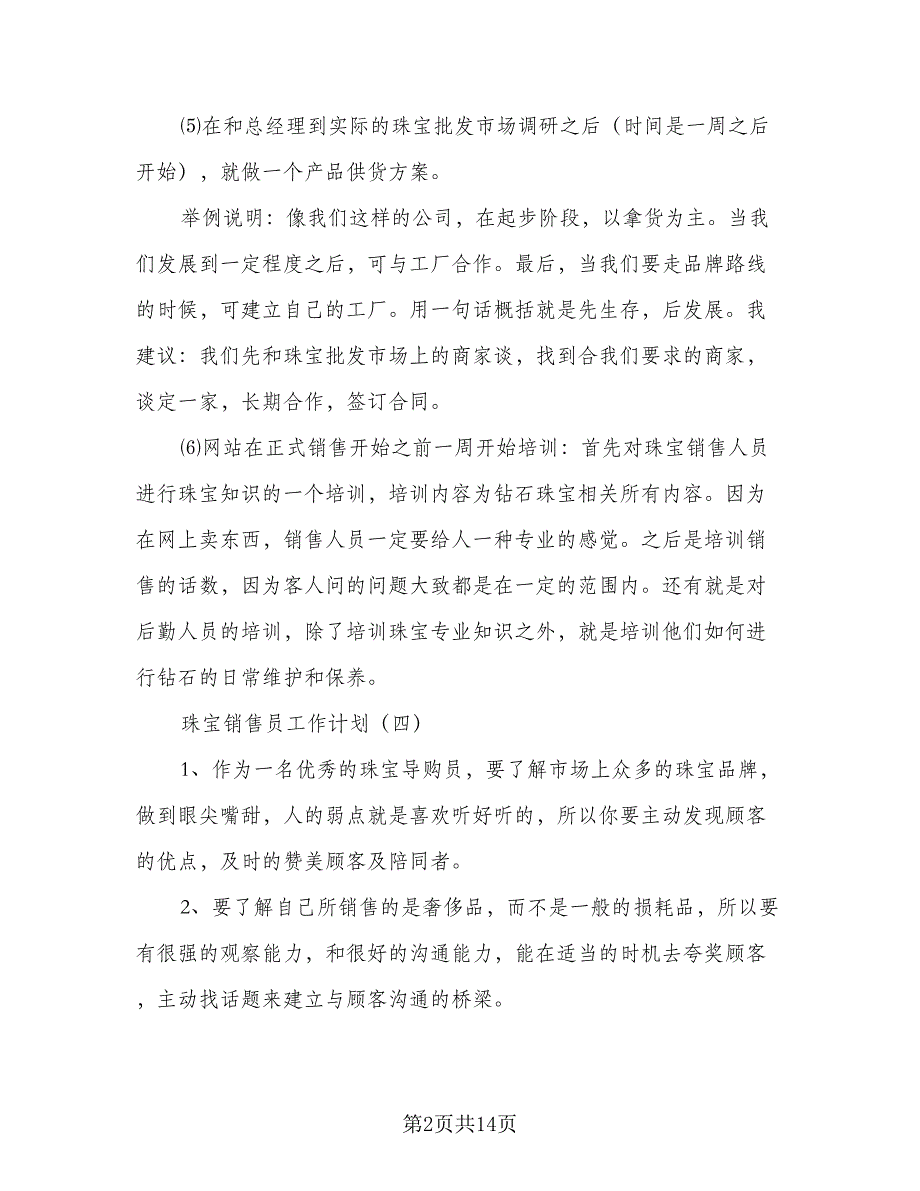 ⑸在和总经理到实际的珠宝批发市场调研之后（时间是一周之后
开始），就做一个产品供货方案。
举例说明：像我们这样的公司，在起步阶段，以拿货为主。当我
们发展到一定程度之后，可与工厂合作。最后，当我们要走品牌路线
的时候，可建立自己的工厂。用一句话概括就是先生存，后发展。我
建议：我们先和珠宝批发市场上的商家谈，找到合我们要求的商家，
谈定一家，长期合作，签订合同。
⑹网站在正式销售开始之前一周开始培训：首先对珠宝销售人员
进行珠宝知识的一个培训，培训内容为钻石珠宝相关所有内容。因为
在网上卖东西，销售人员一定要给人一种专业的感觉。之后是培训销
售的话数，因为客人问的问题大致都是在一定的范围内。还有就是对
后勤人员的培训，除了培训珠宝专业知识之外，就是培训他们如何进
行钻石的日常维护和保养。
珠宝销售员工作计划（四）
1、作为一名优秀的珠宝导购员，要了解市场上众多的珠宝品牌，
做到眼尖嘴甜，人的弱点就是喜欢听好听的，所以你要主动发现顾客
的优点，及时的赞美顾客及陪同者。
2、要了解自己所销售的是奢侈品，而不是一般的损耗品，所以要
有很强的观察能力，和很好的沟通能力，能在适当的时机去夸奖顾客
，主动找话题来建立与顾客沟通的桥梁。
第2页共14页